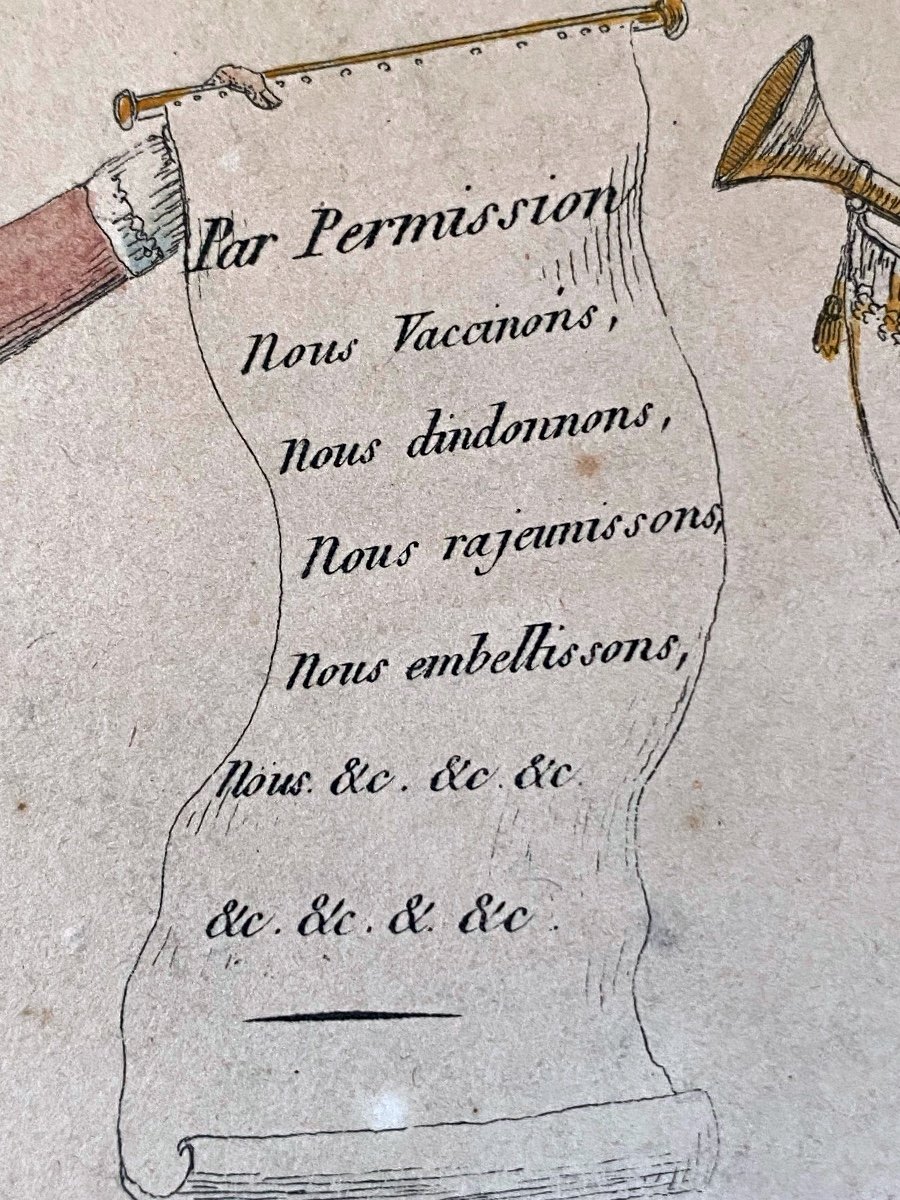 Par Permission
Nous Vaccinons,
Nous dindonnons,
Nous rajeunissons,
Nous embellissons,
Nous. &c. &c. &c
&c. &c. &. &c.